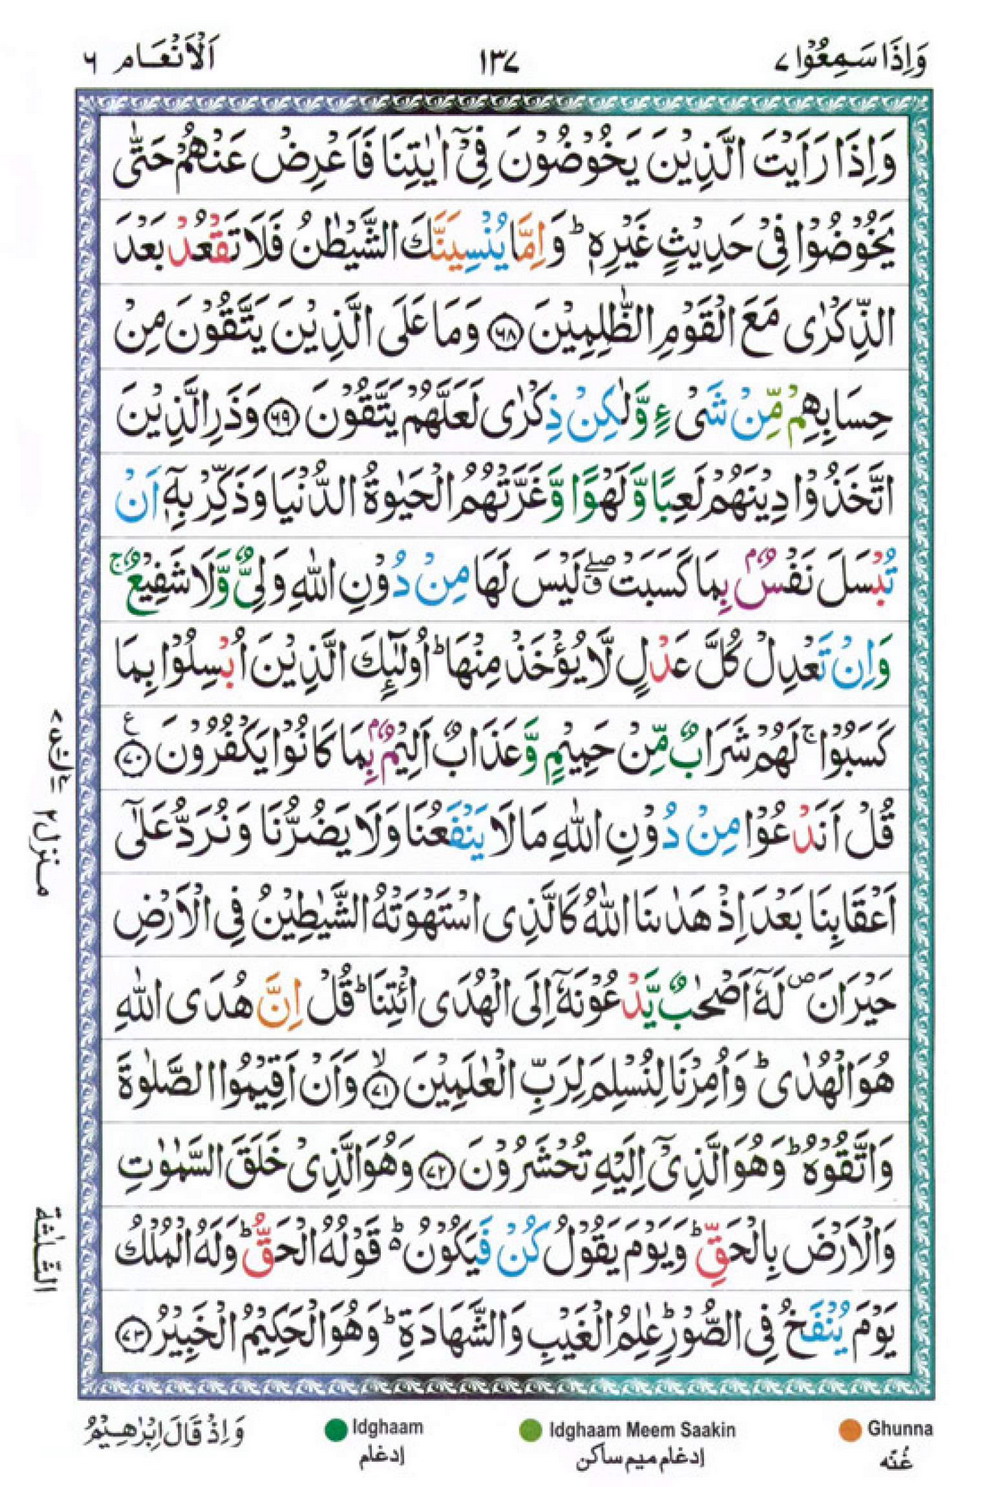 وَاِذَا سَمِعُوْا ٧
١٣٧
اَلْاَنْعَام ٦
وَاِذَا رَاَيْتَ الَّذِيْنَ يَخُوْضُوْنَ فِىْٓ اٰيٰتِنَا فَاَعْرِضْ عَنْهُمْ حَتّٰى
يَخُوْضُوْا فِىْ حَدِيْثٍ غَيْرِهٖ ؕ وَاِمَّا يُنْسِيَنَّكَ الشَّيْطٰنُ فَلَا تَقْعُدْ بَعْدَ
الذِّكْرٰى مَعَ الْقَوْمِ الظّٰلِمِيْنَ ﴿٦٨﴾ وَمَا عَلَى الَّذِيْنَ يَتَّقُوْنَ مِنْ
حِسَابِهِمْ مِّنْ شَىْءٍ وَّلٰكِنْ ذِكْرٰى لَعَلَّهُمْ يَتَّقُوْنَ ﴿٦٩﴾ وَذَرِ الَّذِيْنَ
اتَّخَذُوْا دِيْنَهُمْ لَعِبًا وَّلَهْوًا وَّغَرَّتْهُمُ الْحَيٰوةُ الدُّنْيَا وَذَكِّرْ بِهٖۤ اَنْ
تُبْسَلَ نَفْسٌۢ بِمَا كَسَبَتْ ۖۗ لَيْسَ لَهَا مِنْ دُوْنِ اللّٰهِ وَلِىٌّ وَّلَا شَفِيْعٌ ۚ
وَاِنْ تَعْدِلْ كُلَّ عَدْلٍ لَّا يُؤْخَذْ مِنْهَا ؕ اُولٰٓٮِٕكَ الَّذِيْنَ اُبْسِلُوْا بِمَا
كَسَبُوْا ۚ لَهُمْ شَرَابٌ مِّنْ حَمِيْمٍ وَّعَذَابٌ اَلِيْمٌۢ بِمَا كَانُوْا يَكْفُرُوْنَ ﴿٧٠﴾ ع
قُلْ اَنَدْعُوْا مِنْ دُوْنِ اللّٰهِ مَا لَا يَنْفَعُنَا وَلَا يَضُرُّنَا وَنُرَدُّ عَلٰٓى
اَعْقَابِنَا بَعْدَ اِذْ هَدٰٮنَا اللّٰهُ كَالَّذِى اسْتَهْوَتْهُ الشَّيٰطِيْنُ فِى الْاَرْضِ
حَيْرَانَ ۖ لَهٗۤ اَصْحٰبٌ يَّدْعُوْنَهٗۤ اِلَى الْهُدَى ائْتِنَا ؕ قُلْ اِنَّ هُدَى اللّٰهِ
هُوَ الْهُدٰى ؕ وَاُمِرْنَا لِنُسْلِمَ لِرَبِّ الْعٰلَمِيْنَ ۙ﴿٧١﴾ وَاَنْ اَقِيْمُوا الصَّلٰوةَ
وَاتَّقُوْهُ ؕ وَهُوَ الَّذِىْۤ اِلَيْهِ تُحْشَرُوْنَ ﴿٧٢﴾ وَهُوَ الَّذِىْ خَلَقَ السَّمٰوٰتِ
وَالْاَرْضَ بِالْحَقِّ ؕ وَيَوْمَ يَقُوْلُ كُنْ فَيَكُوْنُ ؕ قَوْلُهُ الْحَقُّ ؕ وَلَهُ الْمُلْكُ
يَوْمَ يُنْفَخُ فِى الصُّوْرِ ؕ عٰلِمُ الْغَيْبِ وَالشَّهَادَةِ ؕ وَهُوَ الْحَكِيْمُ الْخَبِيْرُ ﴿٧٣﴾
منزل ٢
الثلٰثة
Ghunna
غُنّه
Idghaam Meem Saakin
إدغام ميم ساكن
Idghaam
إدغام
وَاِذْ قَالَ اِبْرٰهِيْمُ